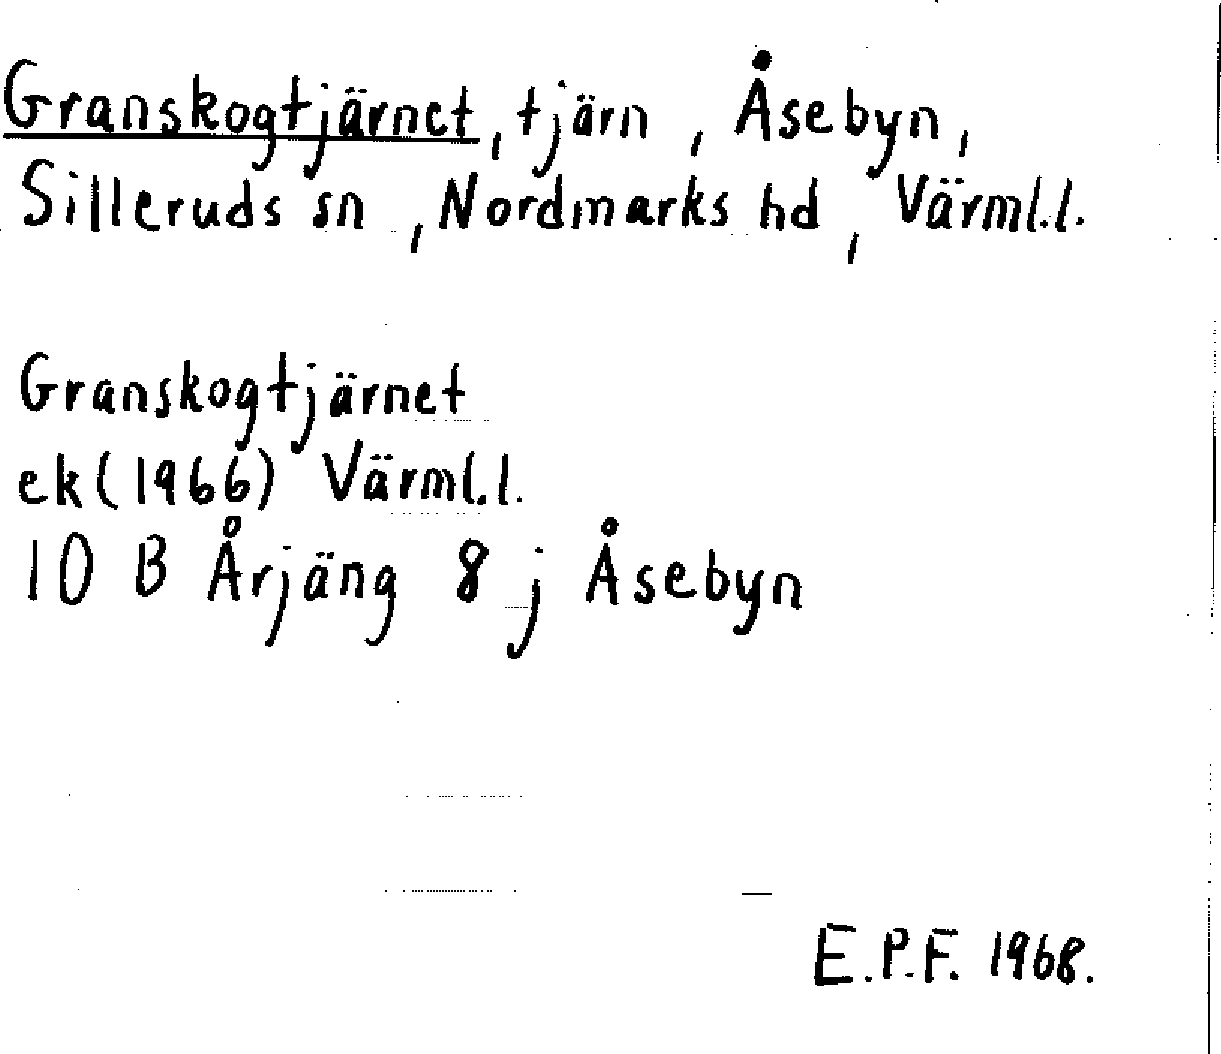 Granskogtjärnet, tjärn, Åsebyn,
Silleruds sn, Nordmarks hd, Värml.l.
Granskogtjärnet
ek (1966) Värml.l.
10 B Årjäng 8 j Åsebyn
E.P.F. 1968.